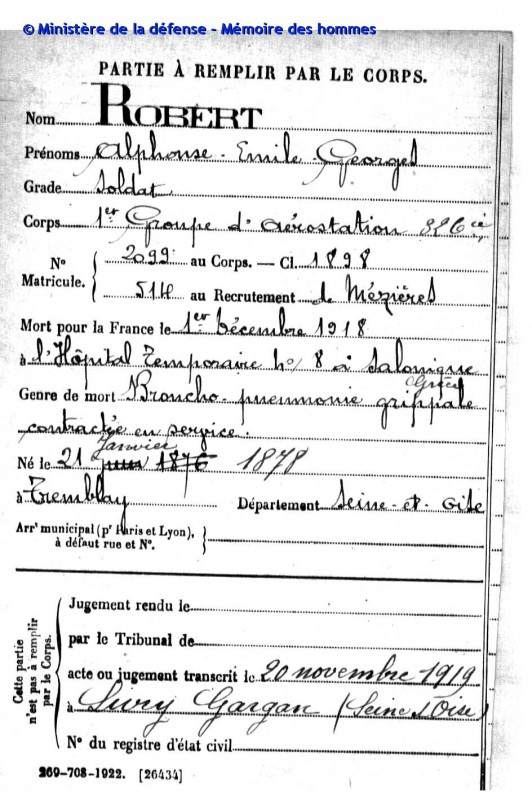 © Ministère de la défense - Mémoire des hommes
PARTIE À REMPLIR PAR LE CORPS.
Nom ROBERT
Prénoms Alphonse - Emile - Georges
Grade Soldat
Corps 1er Groupe d'aérostation 326 cie
N° Matricule. { 2099 au Corps. — Cl. 1898
514 au Recrutement de Mézières
Mort pour la France le 1er Décembre 1918
à l'Hôpital Temporaire no/ 8 à Salonique
(Grèce)
Genre de mort Broncho-pneumonie grippale
contractée en service.
Janvier
Né le 21 juin 1876 1878
à Tremblay Département Seine-et-Oise
Arrt municipal (pr Paris et Lyon), à défaut rue et N°. }
Cette partie n'est pas à remplir par le Corps.
Jugement rendu le
par le Tribunal de
acte ou jugement transcrit le 20 novembre 1919
à Livry Gargan (Seine & Oise)
N° du registre d'état civil
269-708-1922. [26434]